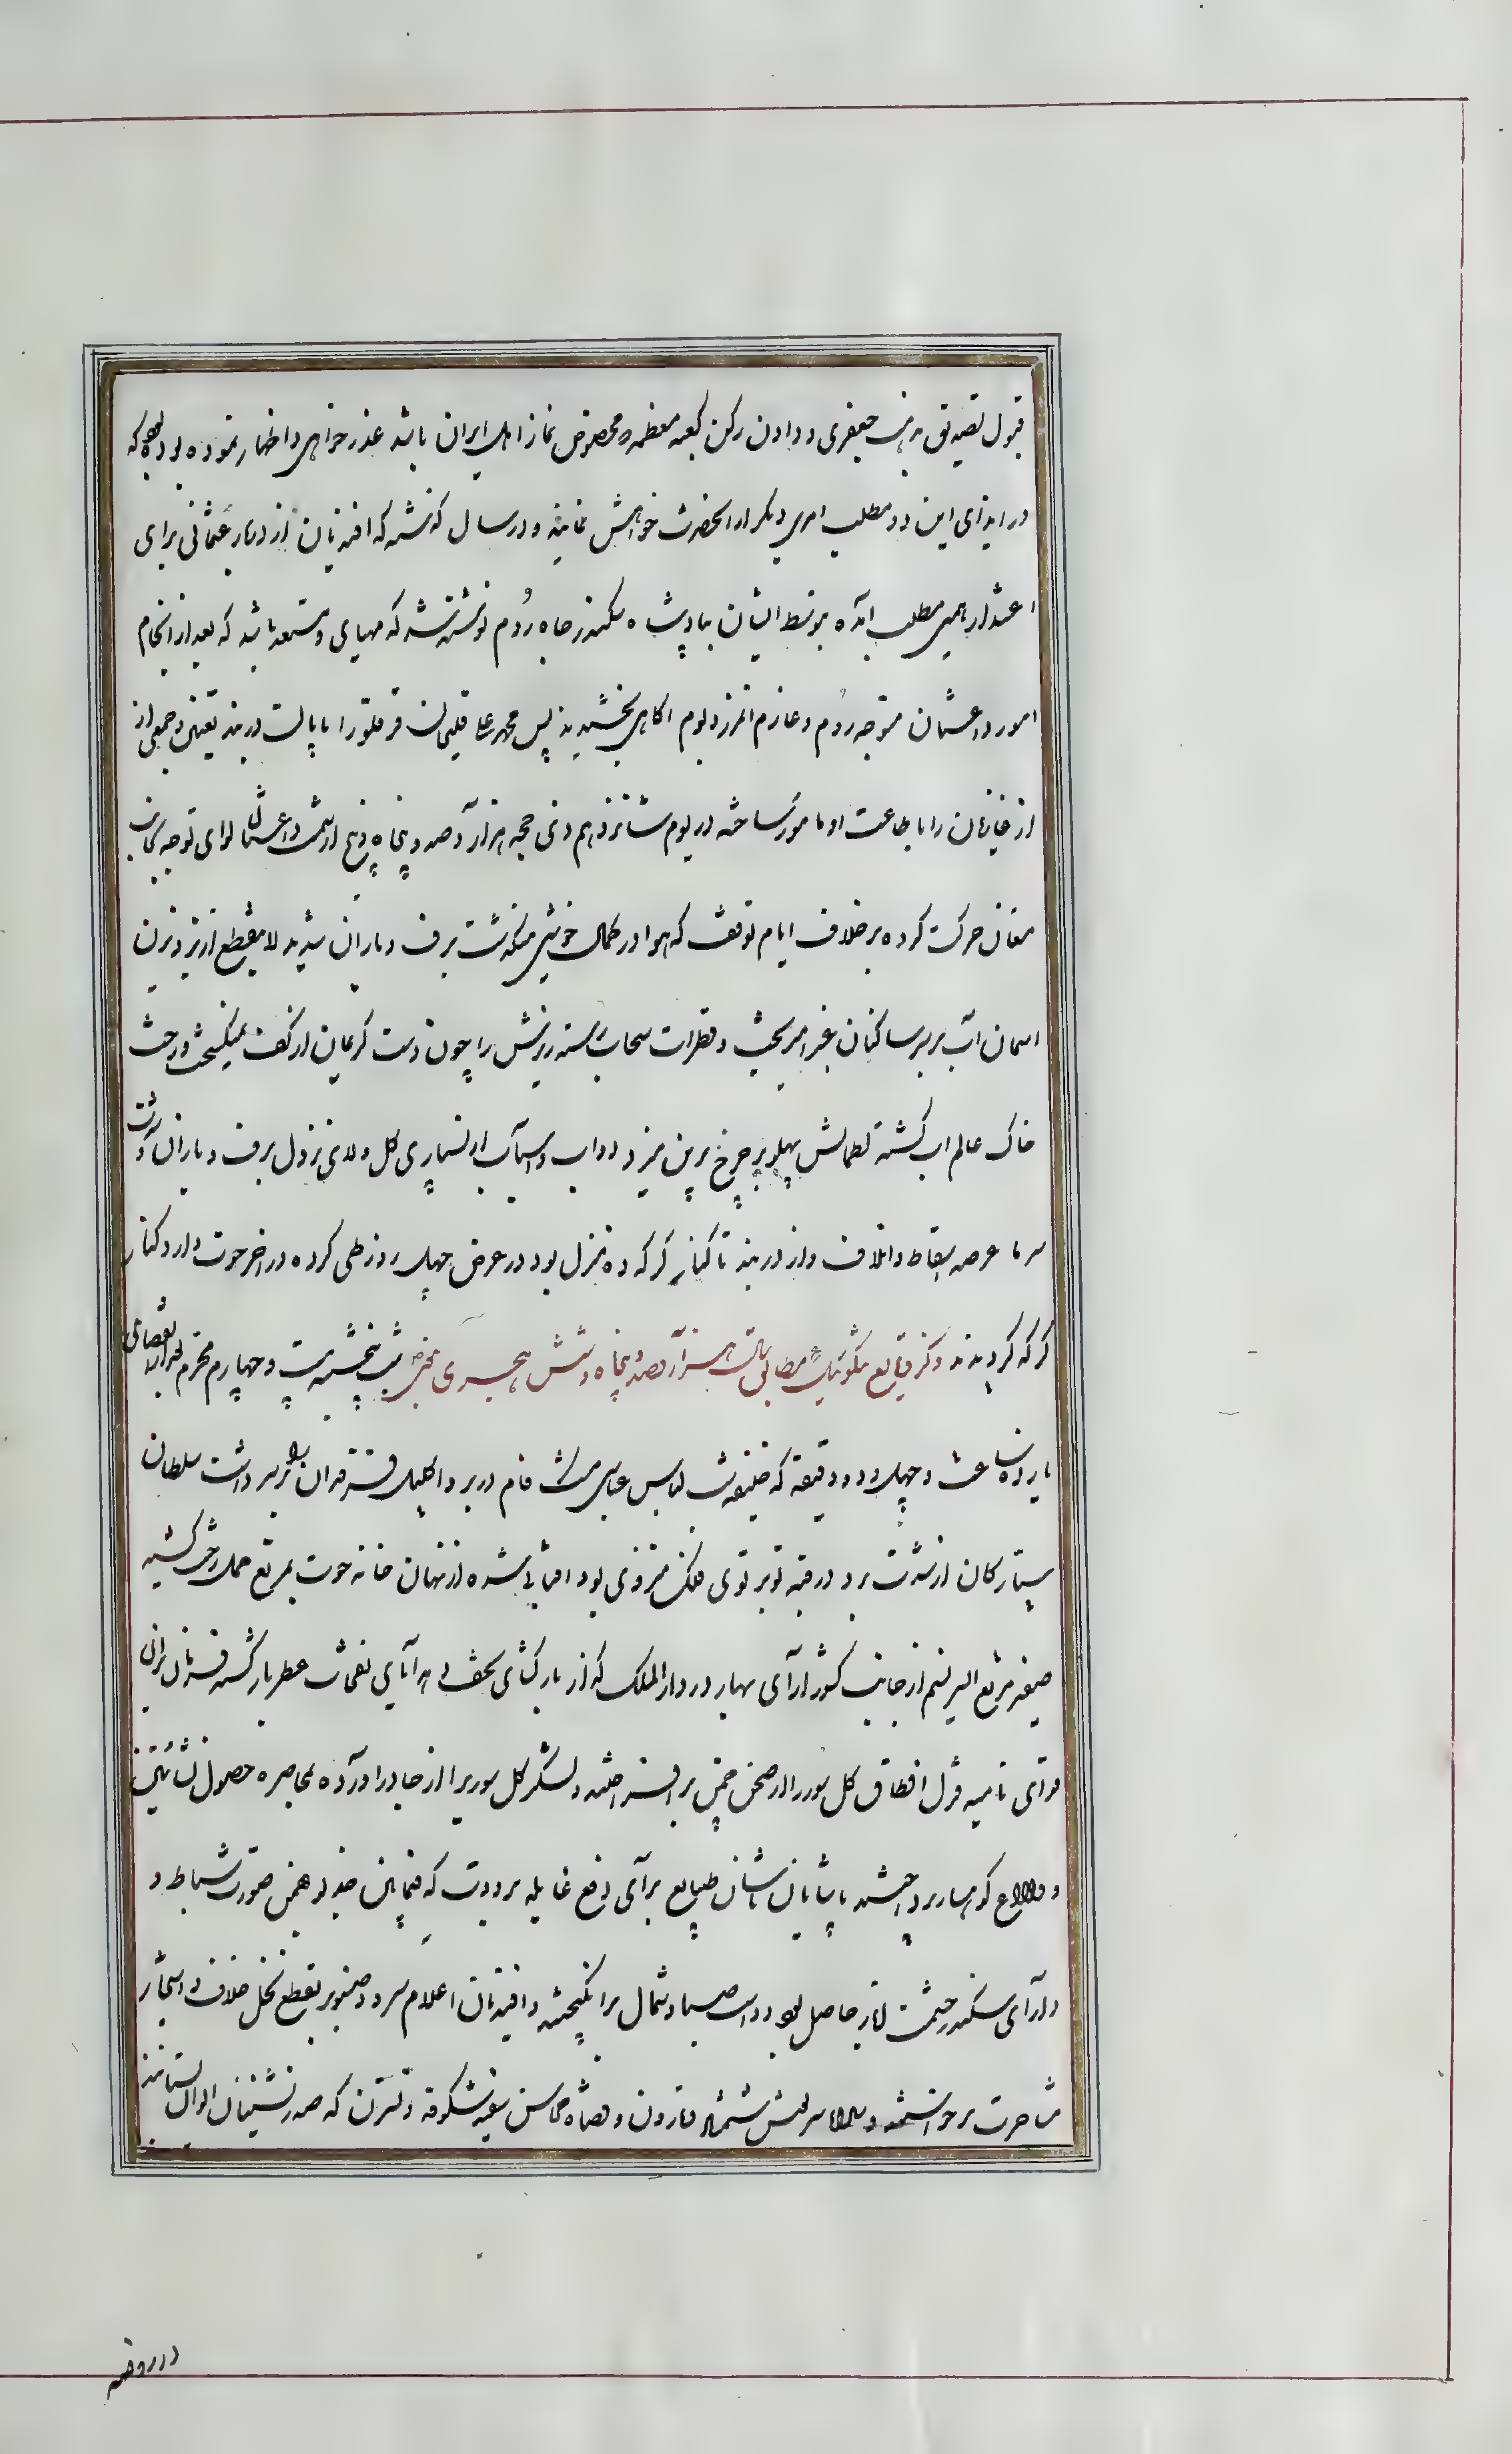 قبول تصدیق مذهب جعفری و دادن رکن کعبه معظمه که مخصوص نماز اهل ایران باشد عذر خواهی و اظهار نموده بود که
در ازای این دو مطلب امری دیگر از آنحضرت خواهش نمایند و در سال گذشته که افندیان از دربار عثمانی برای
اعتذار همین مطلب آمده بتوسط ایشان بپادشاه سکندر جاه روم نوشته شد که مهیای و مستعد باشد که بعد از انجام
امور داغستان متوجه روم و عازم آنمرز و بوم آگاهی بخشیدند پس محمد علی قلیخان قرقلو را بایالت دربند تعیین و جمعی از
از غازیان را باطاعت او مامور ساخته در یوم شانزدهم ذی حجه هزار و صد و پنجاه و پنج از سمت داغستان لوای توجه بجانب
مغان حرکت کرده بر خلاف ایام توقف که هوا در کمال خوشی میگذشت برف و باران شدید لاینقطع از پرویزن
آسمان آب بر سر ساکنان غبرا میریخت و قطرات سحاب رشته ریزش را چون دست کریمان از کف نمیگسیخت و رخت
خاک عالم آب گشته تلاطمش پهلو بر چرخ برین میزد دواب و اسباب از بسیاری گل و لای نزول برف و باران و شدت
سرما عرصه اسقاط و اتلاف و از دربند تا کنار کر که ده منزل بود در عرض چهل روز طی کرده در آخر حوت وارد کنار
کر که گردیدند ذکر وقایع تنگوزئیل مطابق سال هزار و صد و پنجاه و شش هجری شب پنجشنبه بیست و چهارم محرم بعد از انقضای
یازده ساعت و چهل و دو دقیقه که خلیفه شب لباس عباسی مشک فام در بر و اکلیل فرقدان بر سر داشت سلطان
سیارگان از شدت برد در قبه تو بر توی فلک منزوی بود آفتابی شده از نهان خانه حوت بمربع حمل رخت کشید
صیغه مربع النسیم از جانب کشور آرای بهار در دار الملک که از بارگشای تحف و هدایای نفحات عطر بار گشته فرمان برانی
قوای نامیه قزل افطاق گل سوری را در صحن چمن بر افراشته و لشکر گل سوری را از جا در آورده بمحاصره حصون بساتین
و قلاع کوهسار پرداختند پاشایان ذیشان طبایع برای دفع غایله برودت که فیمابین خدیو بهمن صورت شباط و
دارای سکندر حشمت آذار حاصل بود دست صبا و شمال برانگیخته و افندیان اعلام سرو و صنوبر بقطع نخل خلاف و اشجار
مشاجرت برخواستند و بید و قضاة محاسن سفید شکوفه و نسترن که صدر نشینان ایوان بستانند
در روضه